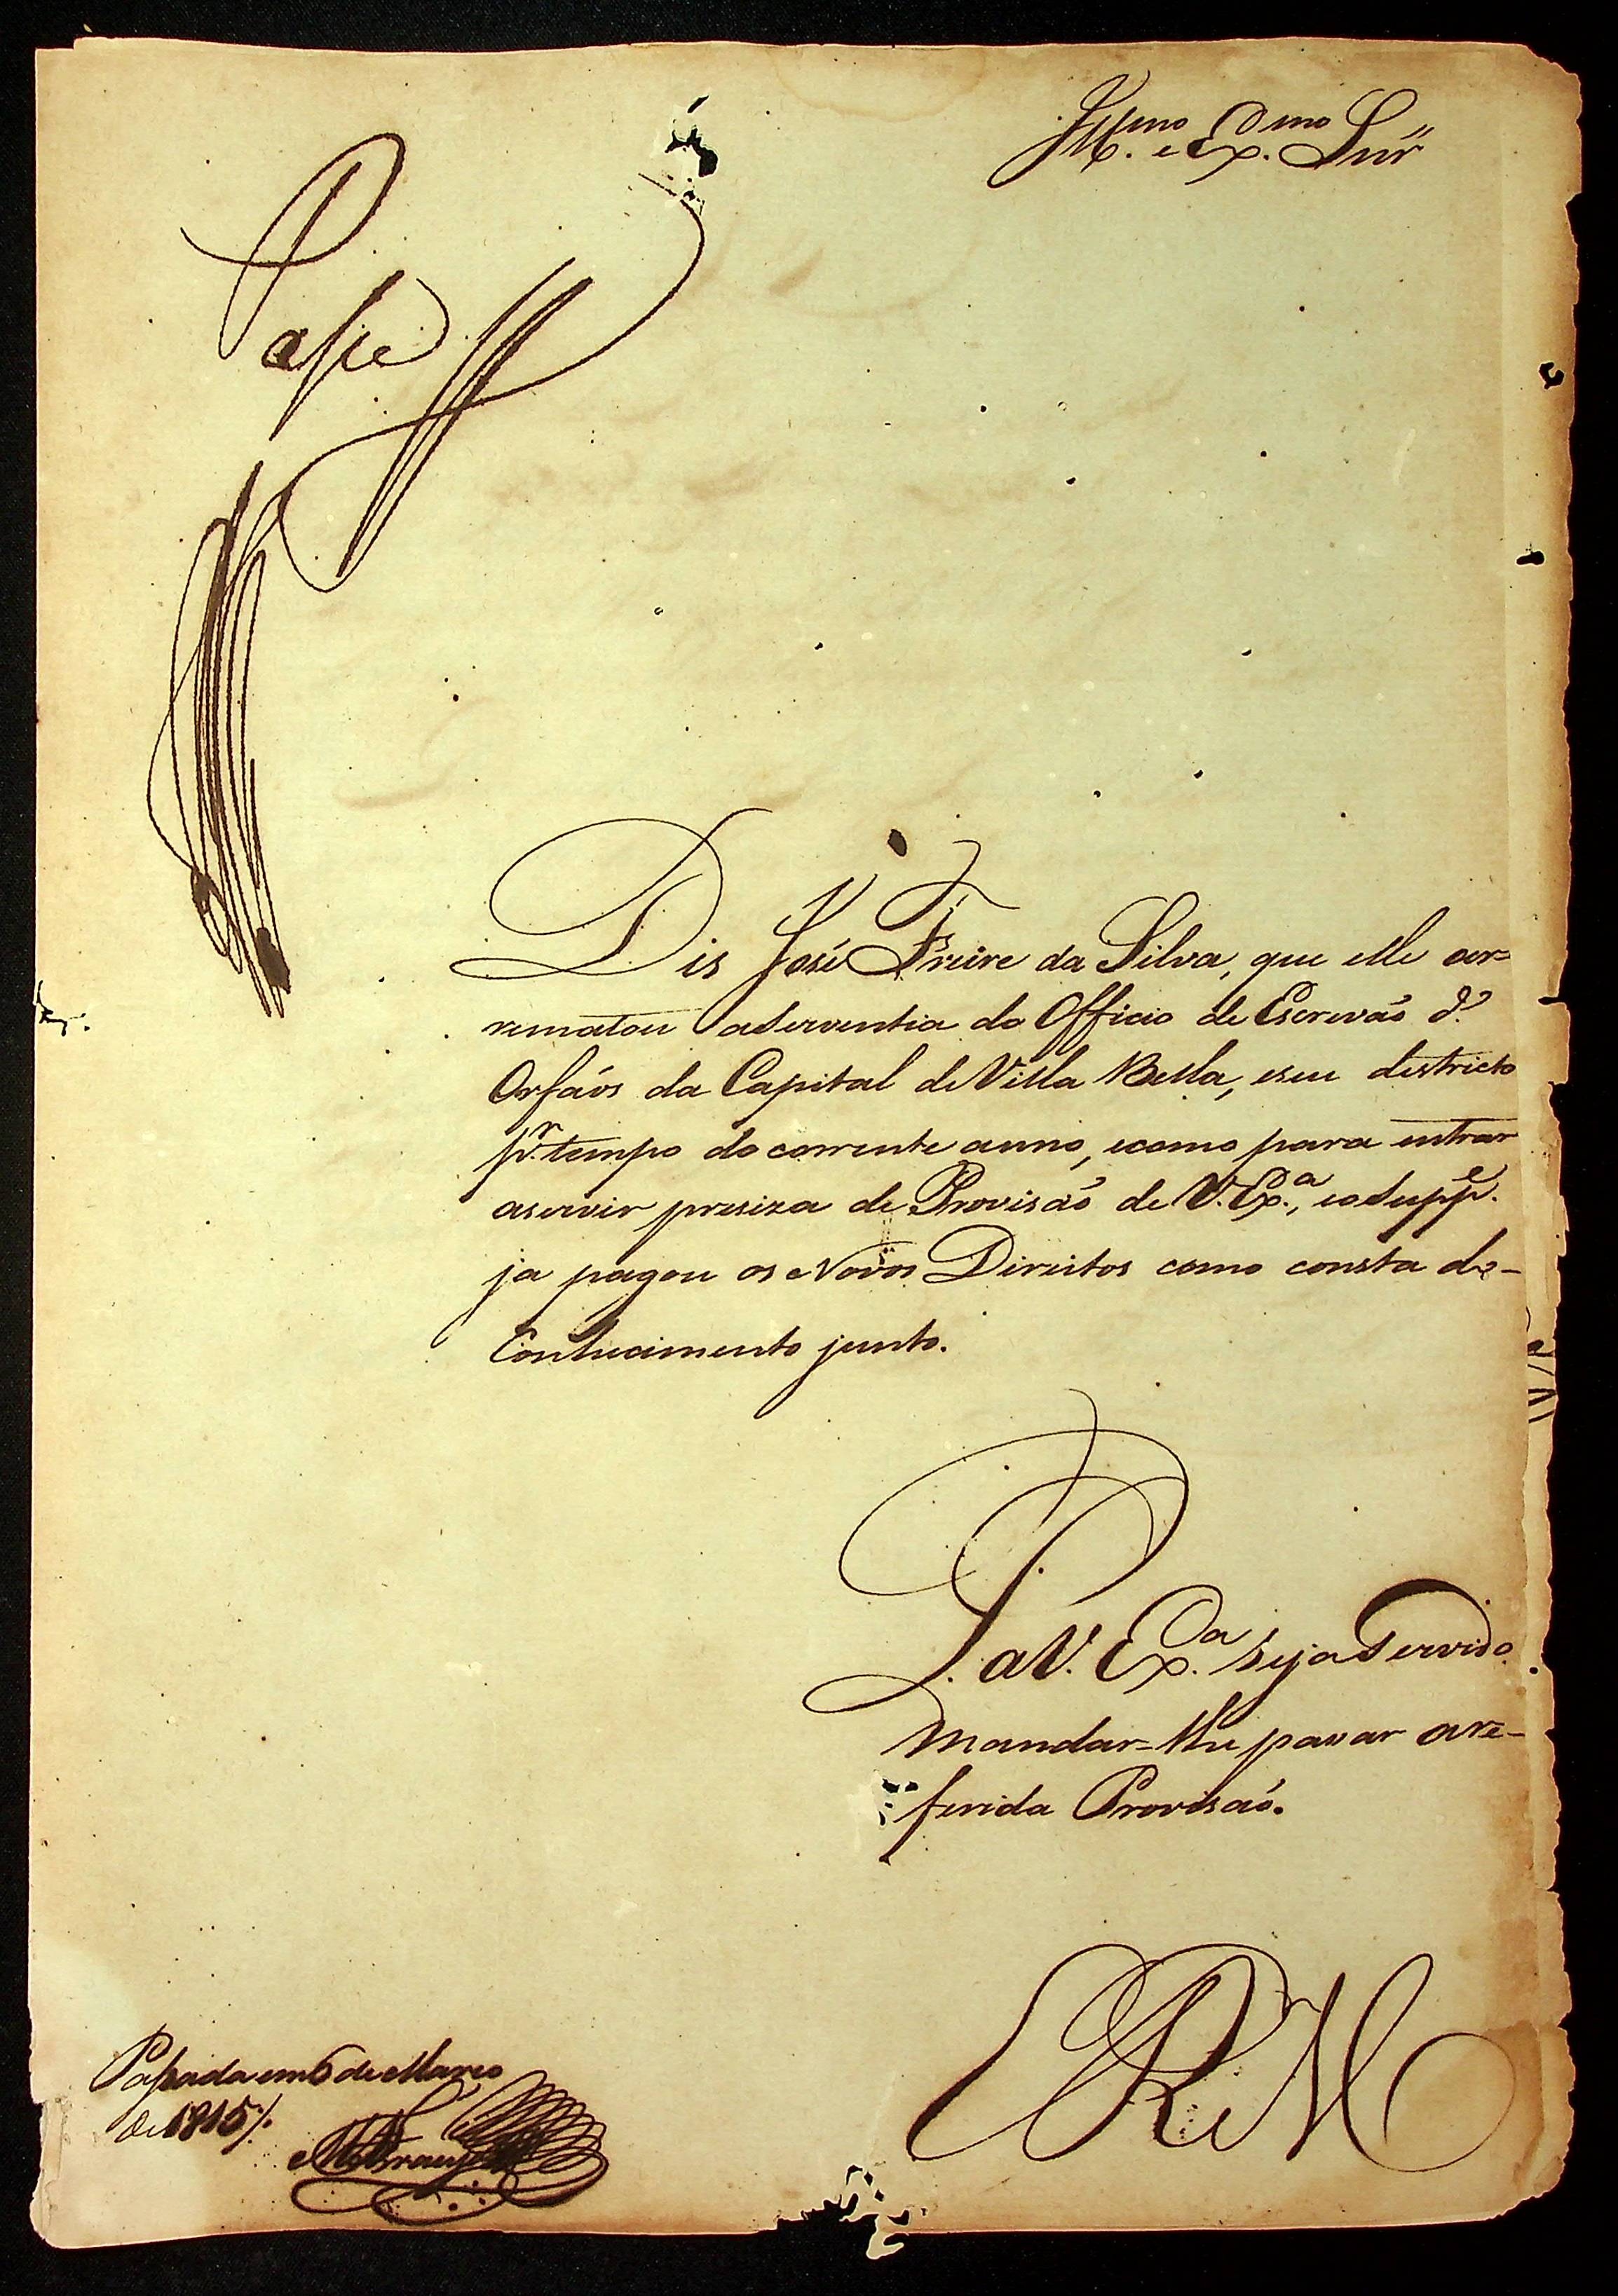 Ill.mo e Ex.mo Snr̃
Passe
Dis José Freire da Silva, que elle ar=
rematou aserventia do Officio de Escrevaõ d.e
Orfaõs da Capital de Villa Bella, eseu districto
p.r tempo do corrente anno, ecomo para entrar
aservir presiza de Provisaõ de V. Ex.a, eoSupp.e
ja pagou os Novos Direitos como consta do-
Conhecimento junto.
P. aV. Ex.a seja Servido
mandar=lhe passar are-
ferida Provisaõ.
E R M
Passada em 6 de Março
de 1815